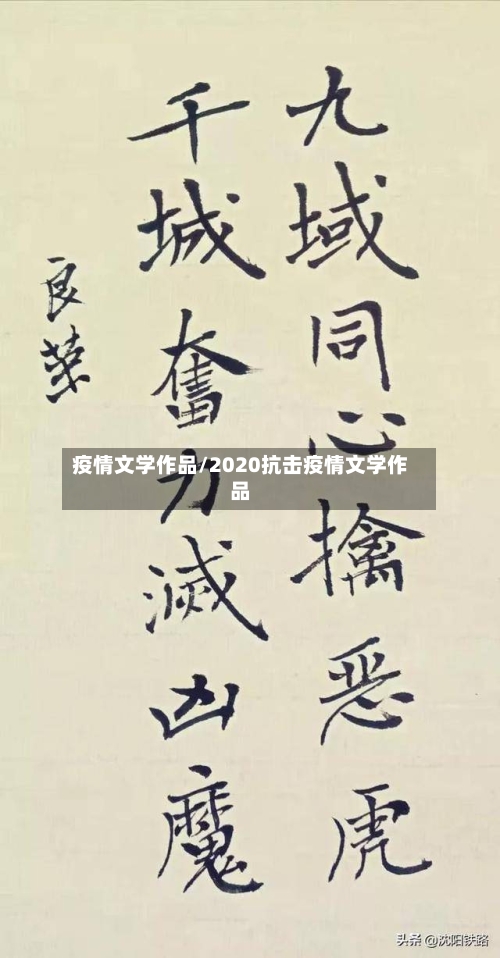 九域同心擒恶虎
千城奋力滅凶魔
良荣
疫情文学作品/2020抗击疫情文学作
品
头条 @沈阳铁路